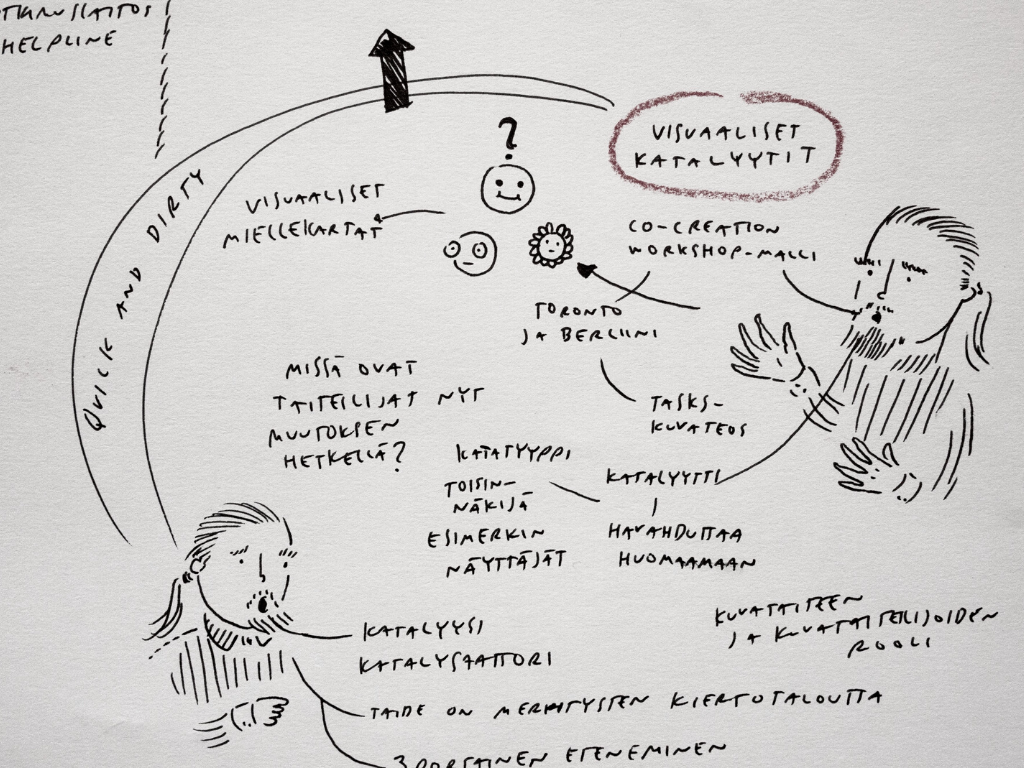 HELPLINE
QUICK AND DIRTY
?
VISUAALISET
KATALYYTIT
VISUAALISET
MIELLEKARTAT
CO-CREATION
WORKSHOP-MALLI
TORONTO
JA BERLIINI
TASKS-
KUVATEOS
MISSÄ OVAT
TAITEILIJAT NYT
MUUTOKSEN
HETKELLÄ?
KATATYYPPI
TOISIN-
NÄKIJÄ
ESIMERKIN
NÄYTTÄJÄT
KATALYYTTI
HAVAHDUTTAA
HUOMAAMAAN
KUVATAITEEN
JA KUVATAITEILIJOIDEN
ROOLI
KATALYYSI
KATALYSAATTORI
TAIDE ON MERKITYSTEN KIERTOTALOUTTA
3 PORTAINEN ETENEMINEN